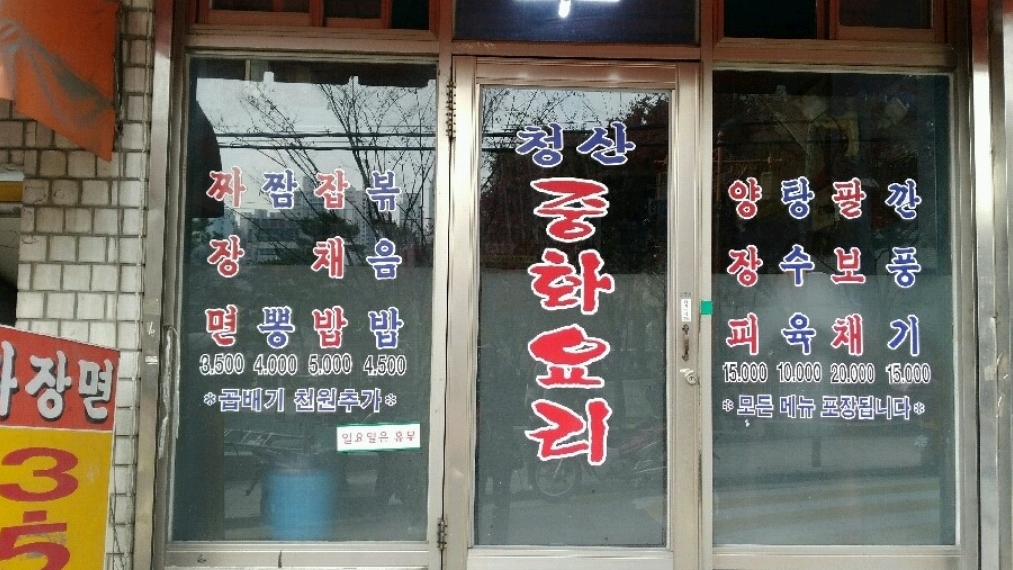 짜장면
짬뽕
잡채밥
볶음밥
3.500 4.000 5.000 4.500
*곱배기 천원추가*
일요일은 휴무
청산
중화요리
양장피
탕수육
팔보채
깐풍기
15.000 10.000 20.000 15.000
*모든 메뉴 포장됩니다*
장면
3
5